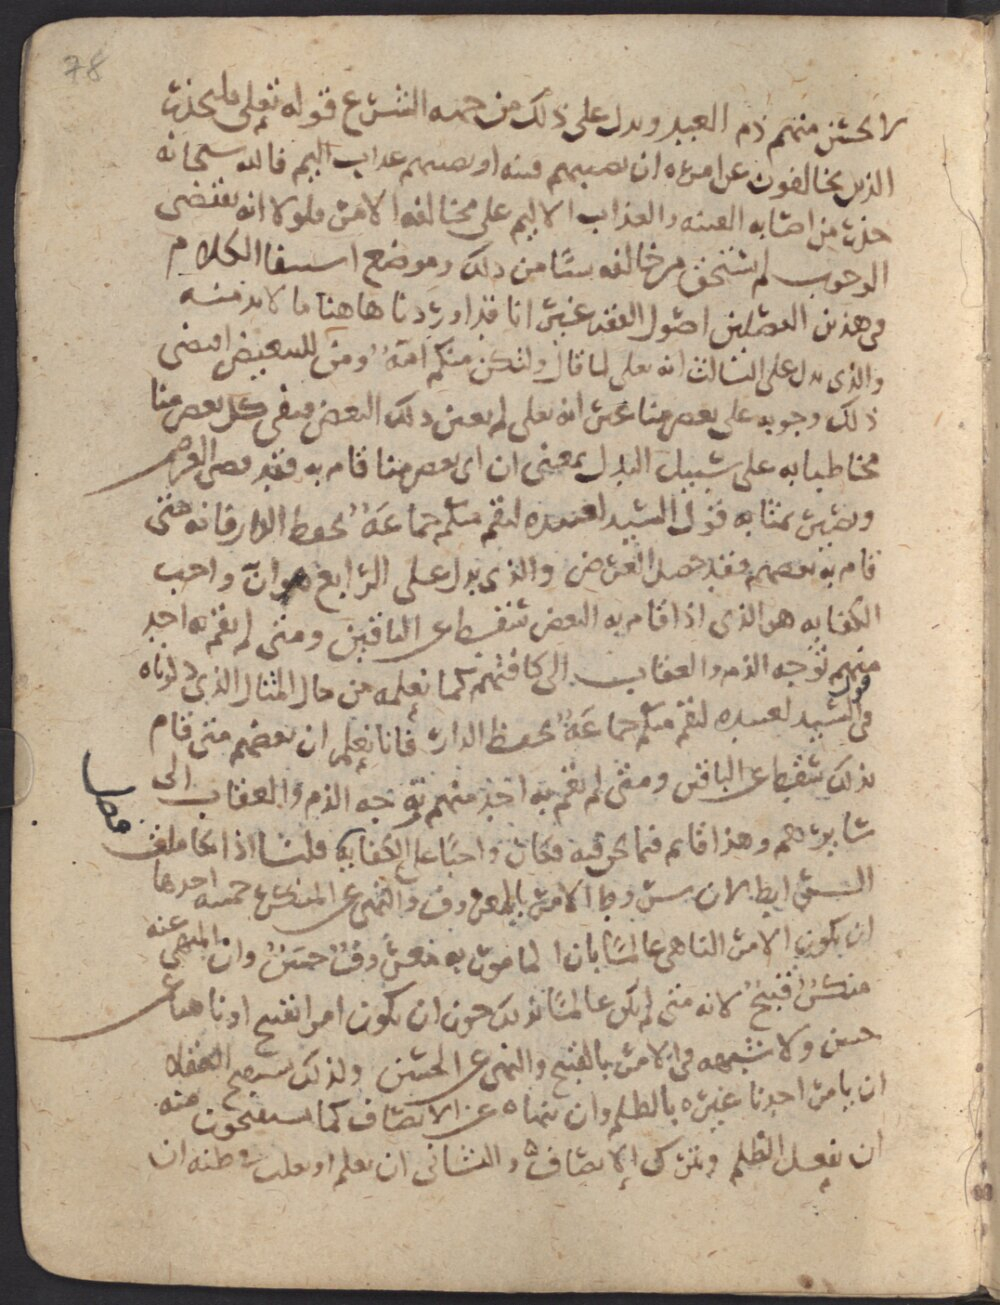 78
لا يحسن منهم ذم العبد ويدل على ذلك من جهه الشرع قوله تعلى فليحذر
الذين يخالفون عن امره ان تصيبهم فتنه او يصيبهم عذاب اليم فالله سبحانه
حذر من اصابه الفتنه والعذاب الاليم على مخالفه الامر فلولا انه يقتضى
الوجوب لم يستحق من خالفه شيئا من ذلك وموضع استيفا الكلام
فى هذين الفصلين اصول الفقه غير انا قد اوردنا هاهنا ما لا بد منه
والذى يدل على الثالث انه تعلى لما قال ولتكن منكم امة ومن للتبعيض اقتضى
ذلك وجوبه على بعض منا غير انه تعلى لم يعين ذلك البعض فبقى كل بعض منا
مخاطبا به على سبيل البدل بمعنى ان اى بعض منا قام به فقد قضى الغرض
ويصير بمثابه قول السيد لعبيده ليقم منكم جماعة بحفظ الدار فانه متى
قام به بعضهم فقد حصل الغرض والذى يدل على الرابع هو ان واجب
الكفايه هو الذى اذا قام به البعض سقط عن الباقين ومتى لم يقم به احد
منهم توجه الذم والعقاب الى كافتهم كما نعلمه من حال المثال الذى ذكرناه
فى قول السيد لعبيده ليقم منكم جماعة بحفظ الدار فانا نعلم ان بعضهم متى قام
بذلك سقط عن الباقين ومتى لم يقم به احد منهم توجه الذم والعقاب الى
سايرهم وهذا قايم فيما نحن فيه فكان واجبا على الكفايه قلنا اذا تكاملت
فصل
الشرايط لان شروط الامر بالمعروف والنهى عن المنكر خمسه احدها
ان يكون الامر الناهى عالما بان المامور به معروف حسن وان المنهى عنه
منكر قبيح لانه متى لم يكن عالما بذلك جوز ان يكون امرا بقبيح او ناهيا عن
حسن ولا شبهه فى الامر بالقبيح والنهى عن الحسن ولذلك يستقبح العقلا
ان يامر احدنا غيره بالظلم وان ينهاه عن الانصاف كما يستقبحون منه
ان يفعل الظلم ويترك الانصاف والثانى ان يعلم او يغلب بظنه ان